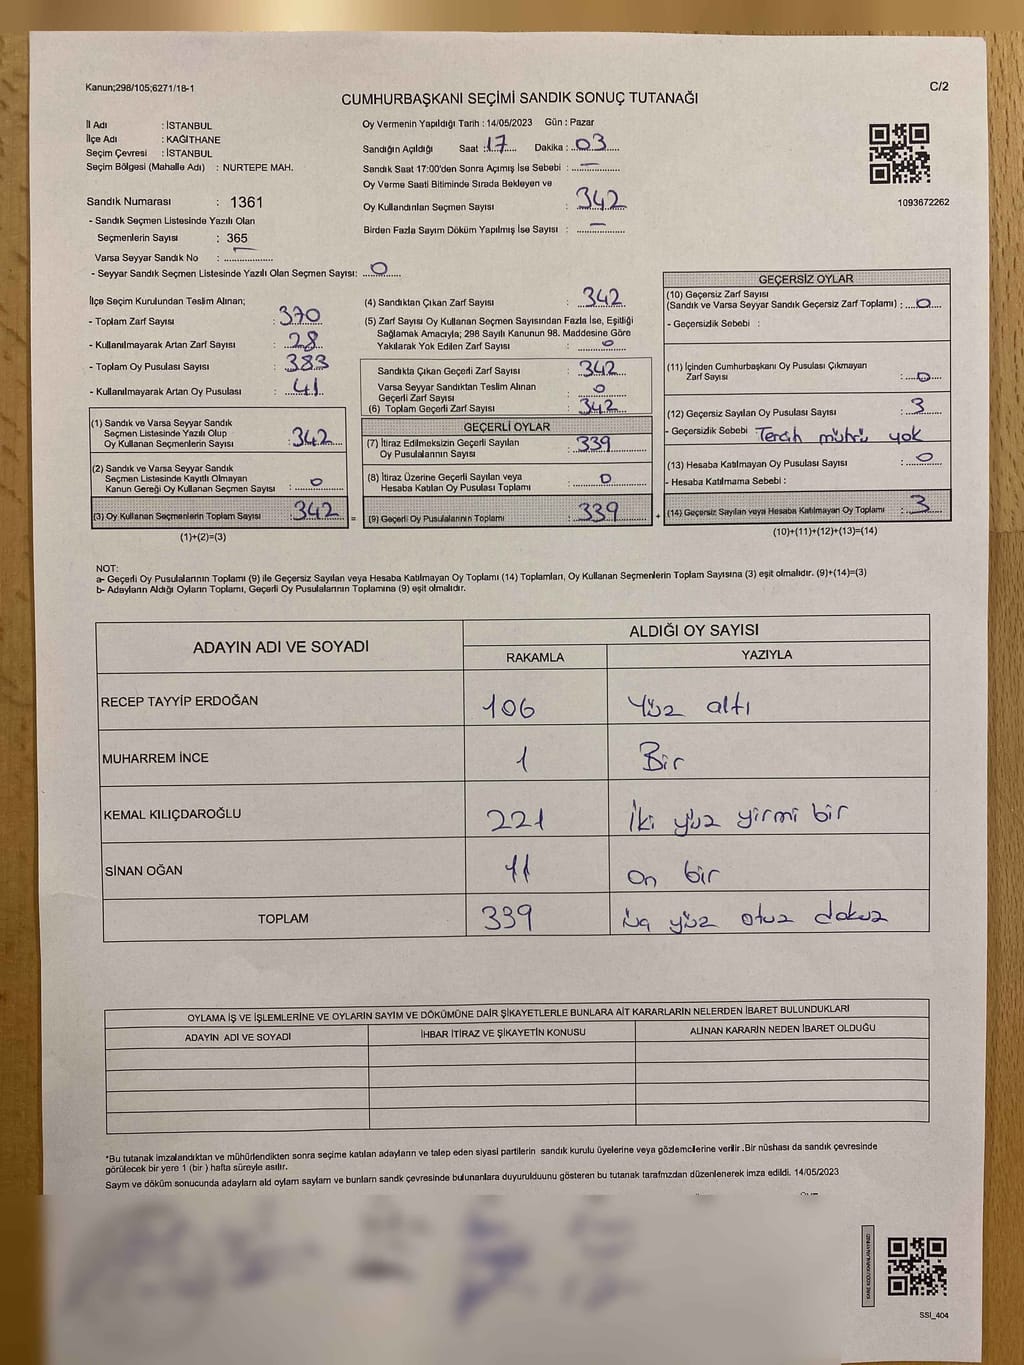 Kanun;298/105;6271/18-1
C/2
CUMHURBAŞKANI SEÇİMİ SANDIK SONUÇ TUTANAĞI
İl Adı : İSTANBUL
İlçe Adı : KAĞITHANE
Seçim Çevresi : İSTANBUL
Seçim Bölgesi (Mahalle Adı) : NURTEPE MAH.
Oy Vermenin Yapıldığı Tarih : 14/05/2023 Gün : Pazar
Sandığın Açıldığı Saat : 17 Dakika : 03
Sandık Saat 17:00'den Sonra Açımış İse Sebebi : —
Oy Verme Saati Bitiminde Sırada Bekleyen ve
Oy Kullandırılan Seçmen Sayısı : 342
Birden Fazla Sayım Döküm Yapılmış İse Sayısı : —
1093672262
Sandık Numarası : 1361
- Sandık Seçmen Listesinde Yazılı Olan
Seçmenlerin Sayısı : 365
Varsa Seyyar Sandık No : —
- Seyyar Sandık Seçmen Listesinde Yazılı Olan Seçmen Sayısı: 0
İlçe Seçim Kurulundan Teslim Alınan;
- Toplam Zarf Sayısı : 370
- Kullanılmayarak Artan Zarf Sayısı : 28
- Toplam Oy Pusulası Sayısı : 383
- Kullanılmayarak Artan Oy Pusulası : 41
(1) Sandık ve Varsa Seyyar Sandık
Seçmen Listesinde Yazılı Olup
Oy Kullanan Seçmenlerin Sayısı : 342
(2) Sandık ve Varsa Seyyar Sandık
Seçmen Listesinde Kayıtlı Olmayan
Kanun Gereği Oy Kullanan Seçmen Sayısı : 0
(3) Oy Kullanan Seçmenlerin Toplam Sayısı : 342
(1)+(2)=(3)
(4) Sandıktan Çıkan Zarf Sayısı : 342
(5) Zarf Sayısı Oy Kullanan Seçmen Sayısından Fazla İse, Eşitliği
Sağlamak Amacıyla; 298 Sayılı Kanunun 98. Maddesine Göre
Yakılarak Yok Edilen Zarf Sayısı : 0
Sandıkta Çıkan Geçerli Zarf Sayısı : 342
Varsa Seyyar Sandıktan Teslim Alınan
Geçerli Zarf Sayısı : 0
(6) Toplam Geçerli Zarf Sayısı : 342
GEÇERLİ OYLAR
(7) İtiraz Edilmeksizin Geçerli Sayılan
Oy Pusulasının Sayısı : 339
(8) İtiraz Üzerine Geçerli Sayılan veya
Hesaba Katılan Oy Pusulası Toplamı : 0
= (9) Geçerli Oy Pusulalarının Toplamı : 339 +
GEÇERSİZ OYLAR
(10) Geçersiz Zarf Sayısı
(Sandık ve Varsa Seyyar Sandık Geçersiz Zarf Toplamı) : 0
- Geçersizlik Sebebi :
(11) İçinden Cumhurbaşkanı Oy Pusulası Çıkmayan
Zarf Sayısı : 0
(12) Geçersiz Sayılan Oy Pusulası Sayısı : 3
- Geçersizlik Sebebi Tercih mührü yok
(13) Hesaba Katılmayan Oy Pusulası Sayısı : 0
- Hesaba Katılmama Sebebi :
(14) Geçersiz Sayılan veya Hesaba Katılmayan Oy Toplamı : 3
(10)+(11)+(12)+(13)=(14)
NOT:
a- Geçerli Oy Pusulalarının Toplamı (9) ile Geçersiz Sayılan veya Hesaba Katılmayan Oy Toplamı (14) Toplamları, Oy Kullanan Seçmenlerin Toplam Sayısına (3) eşit olmalıdır. (9)+(14)=(3)
b- Adayların Aldığı Oyların Toplamı, Geçerli Oy Pusulalarının Toplamına (9) eşit olmalıdır.
ADAYIN ADI VE SOYADI
ALDIĞI OY SAYISI
RAKAMLA YAZIYLA
RECEP TAYYİP ERDOĞAN 106 Yüz altı
MUHARREM İNCE 1 Bir
KEMAL KILIÇDAROĞLU 221 İki yüz yirmi bir
SİNAN OĞAN 11 on bir
TOPLAM 339 üç yüz otuz dokuz
OYLAMA İŞ VE İŞLEMLERİNE VE OYLARIN SAYIM VE DÖKÜMÜNE DAİR ŞİKAYETLERLE BUNLARA AİT KARARLARIN NELERDEN İBARET BULUNDUKLARI
ADAYIN ADI VE SOYADI İHBAR İTİRAZ VE ŞİKAYETİN KONUSU ALINAN KARARIN NEDEN İBARET OLDUĞU
*Bu tutanak imzalandıktan ve mühürlendikten sonra seçime katılan adayların ve talep eden siyasi partilerin sandık kurulu üyelerine veya gözlemcilerine verilir .Bir nüshası da sandık çevresinde
görülecek bir yere 1 (bir ) hafta süreyle asılır.
Sayım ve döküm sonucunda adayların ald oylam saylam ve bunların sandk çevresinde bulunanlara duyurulduunu gösteren bu tutanak tarafmzdan düzenlenerek imza edildi. 14/05/2023
SSİ_404